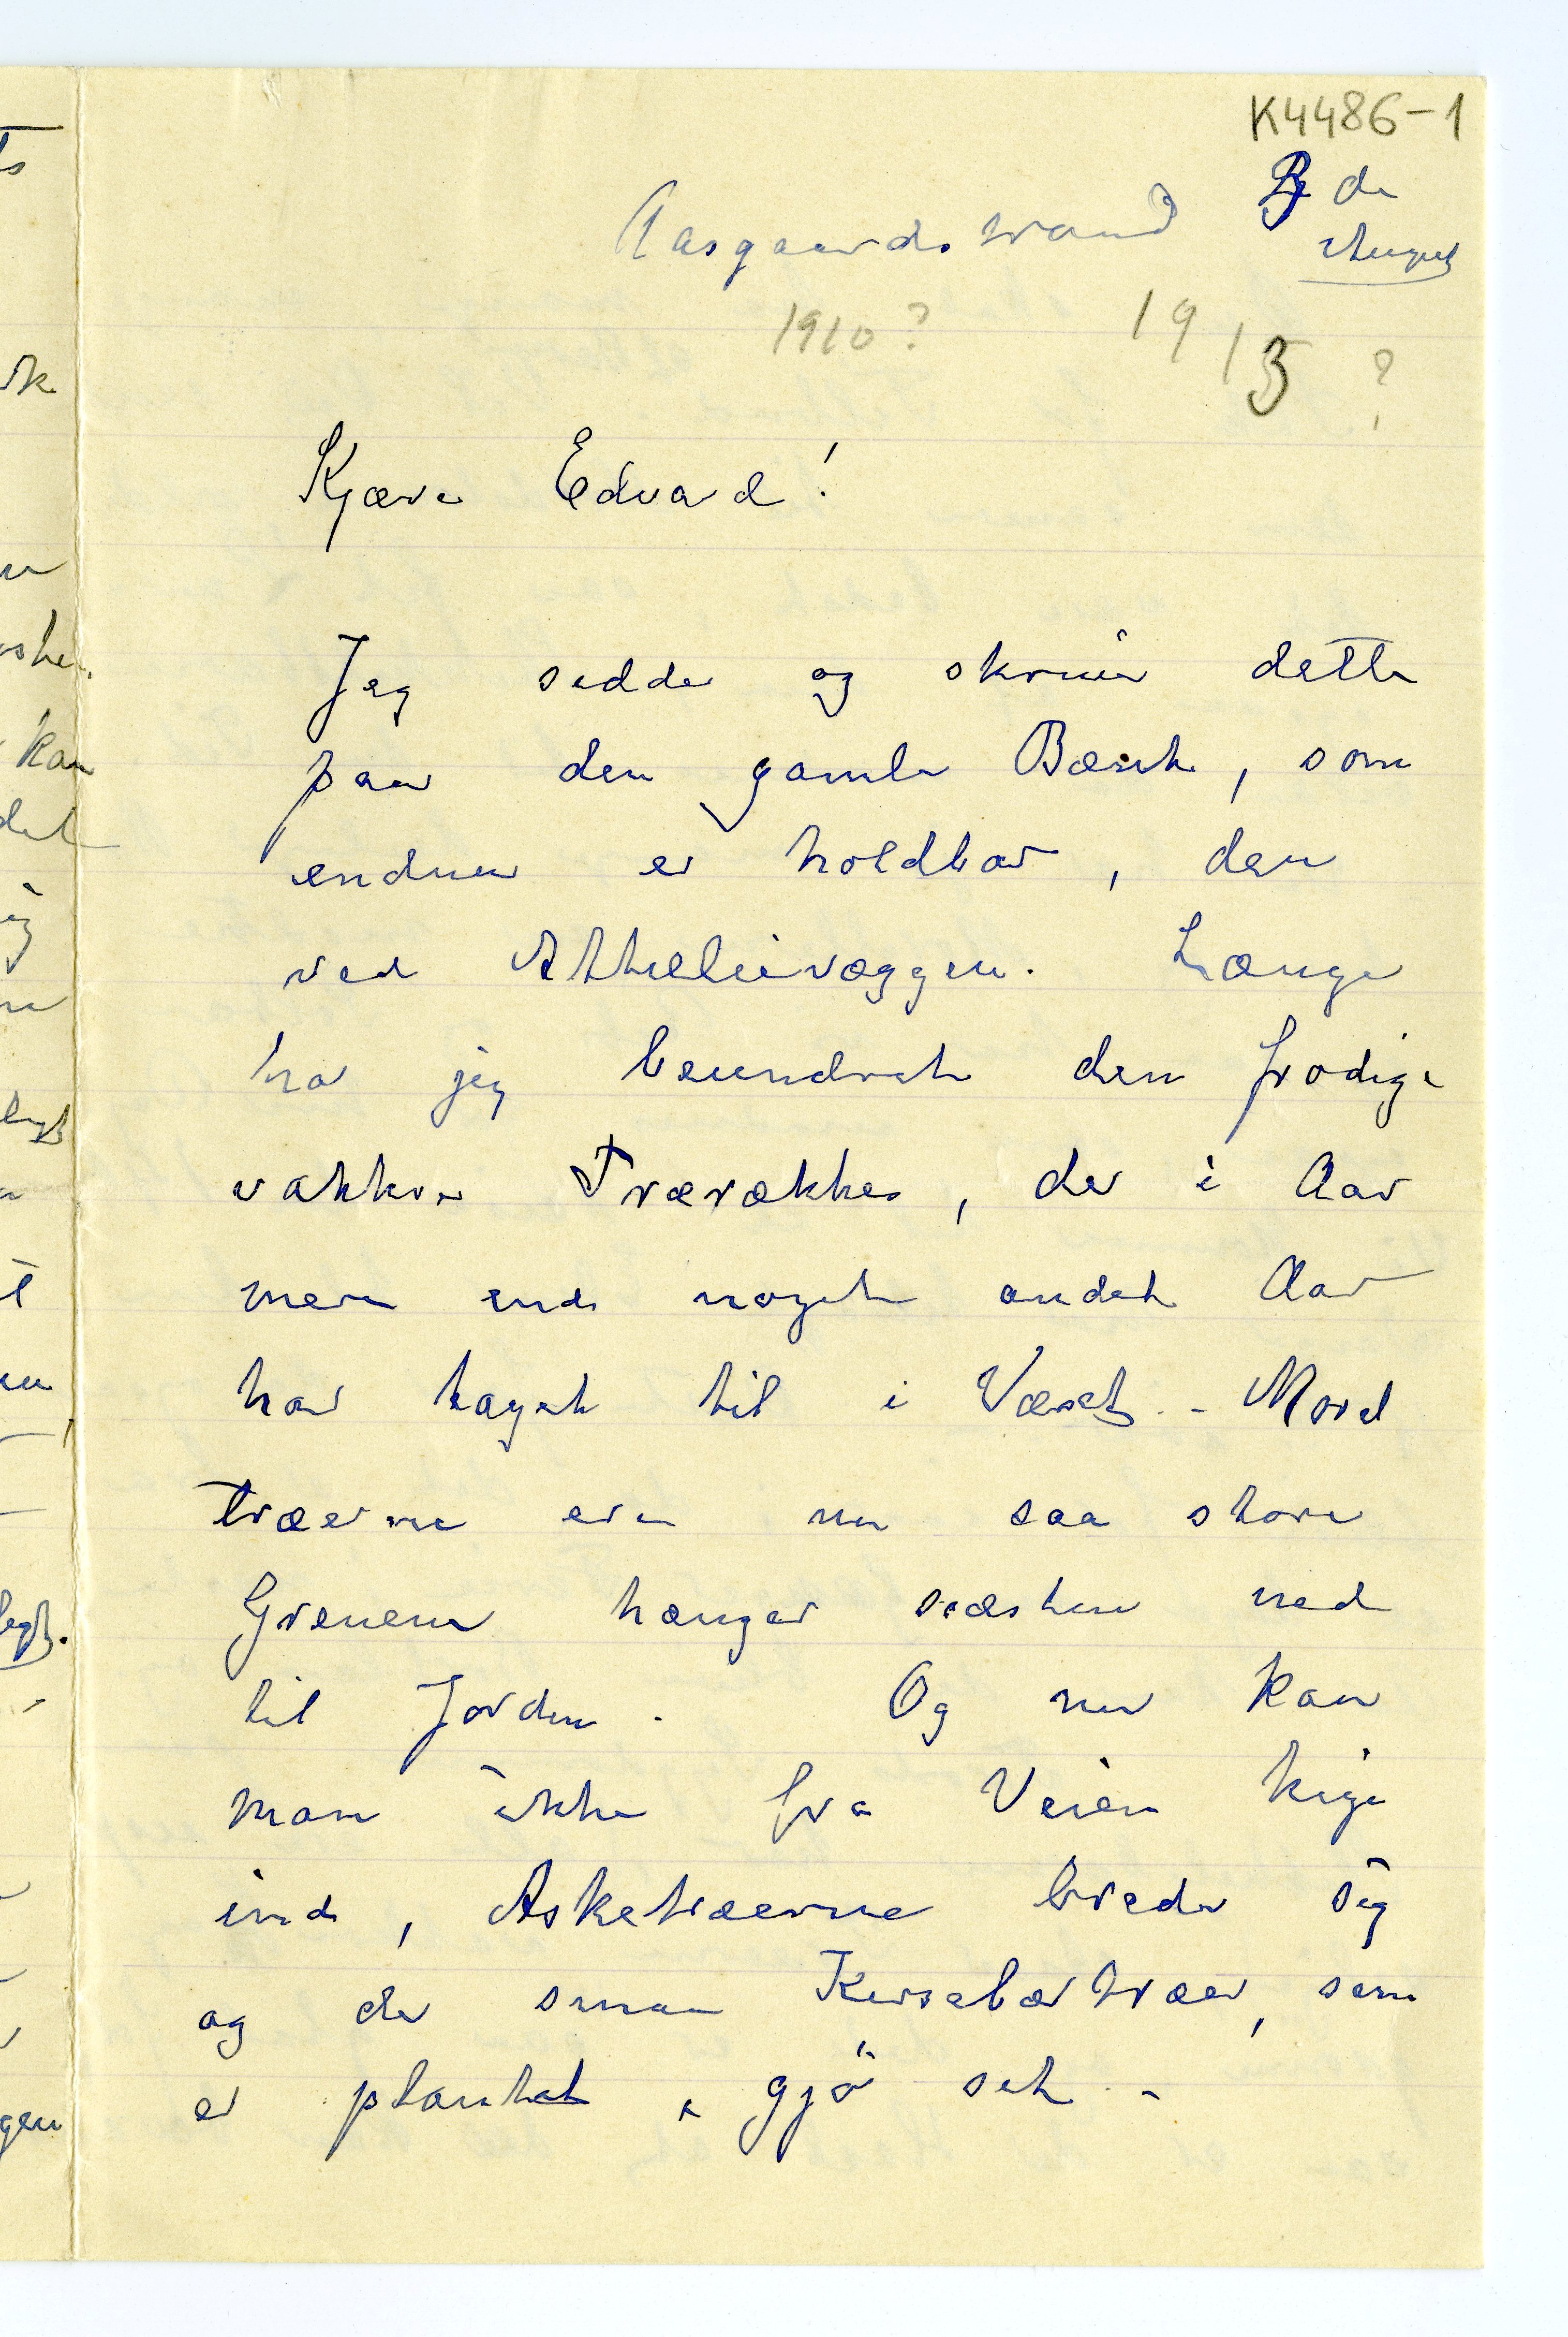 K4486-1
Aasgaardstrand 3 de
August
1910? 1913 ?
Kjære Edvard!
Jeg sidder og skriver dette
paa den gamle Bænk, som
endnu er holdbar, den
ved Attelievæggen. Længe
har jeg beundret den frodige
vakkre Trærækker, der i Aar
mere end noget andet Aar
har taget til i Vækst. - Morel
træerne ere nu saa store
Grenene hænger næsten ned
til Jorden. Og nu kan
man ikke fra Veien kige
ind, Asketræerne breder sig
og de smaa Kirsebærtræer, som
er plantet, gjör sit. -